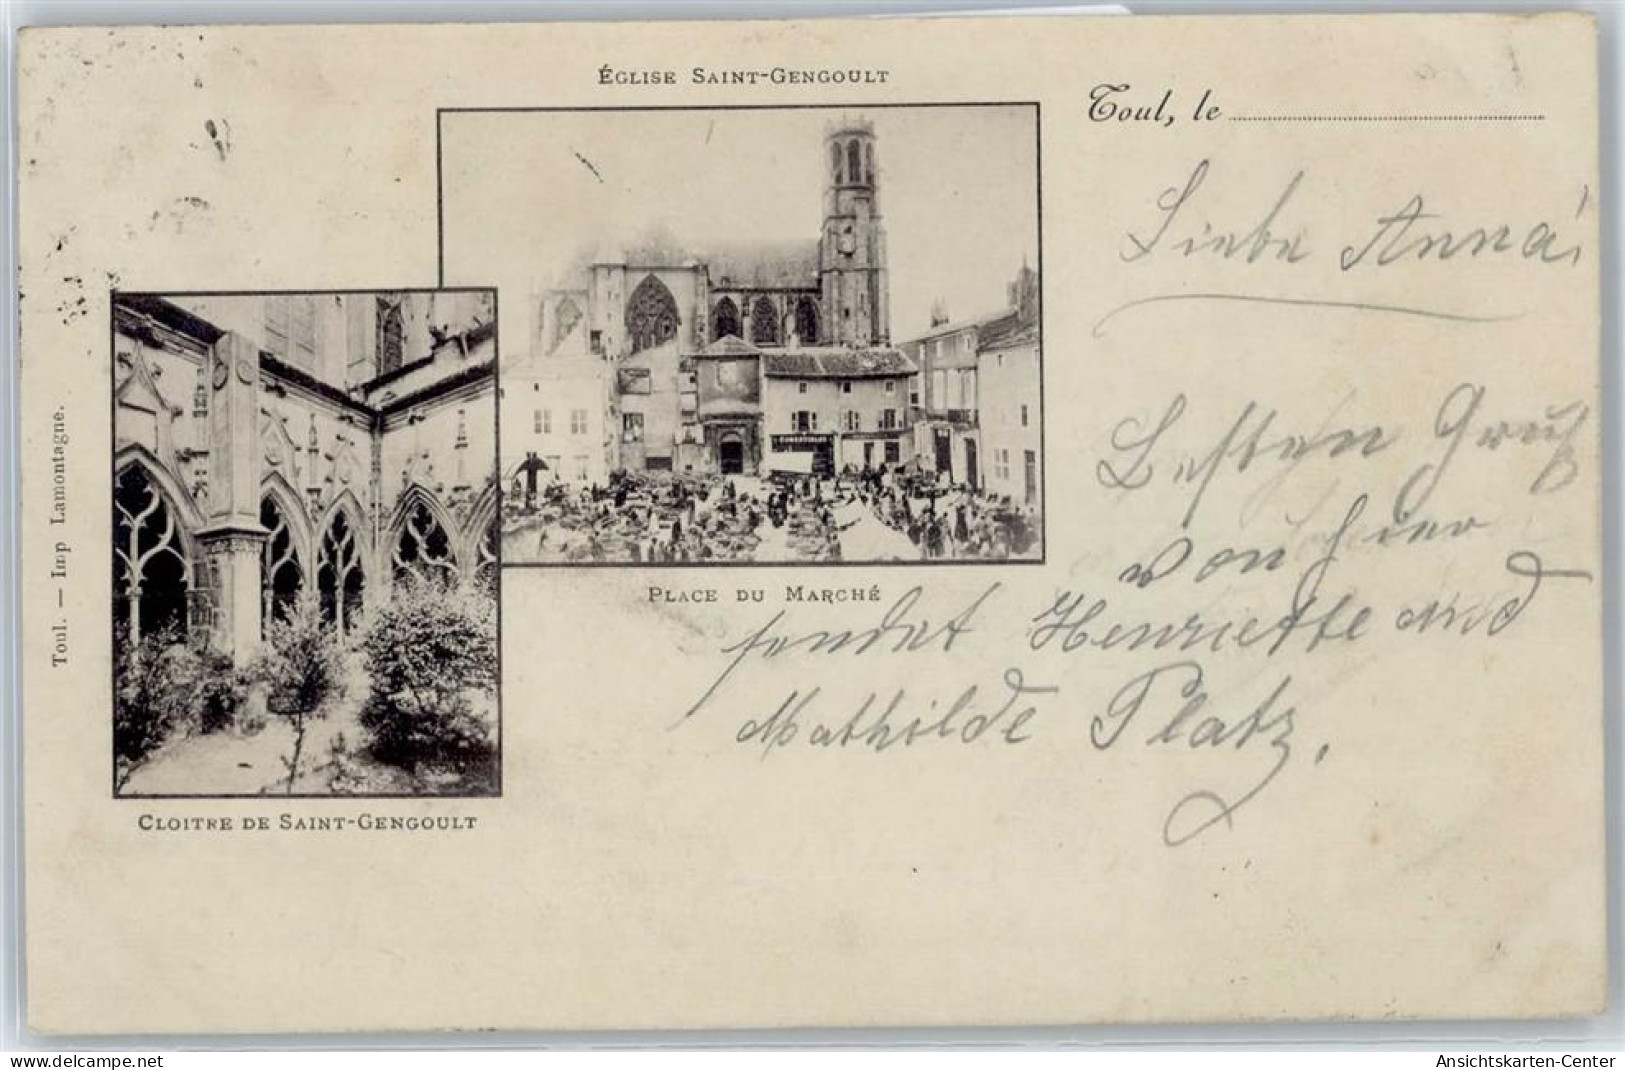 ÉGLISE SAINT-GENGOULT
Toul, le
Liebe Anna!
Besten Gruß
von hier
sendet Henriette und
Mathilde Platz.
PLACE DU MARCHÉ
CLOITRE DE SAINT-GENGOULT
Toul. — Imp Lamontagne.
www.delcampe.net
Ansichtskarten-Center